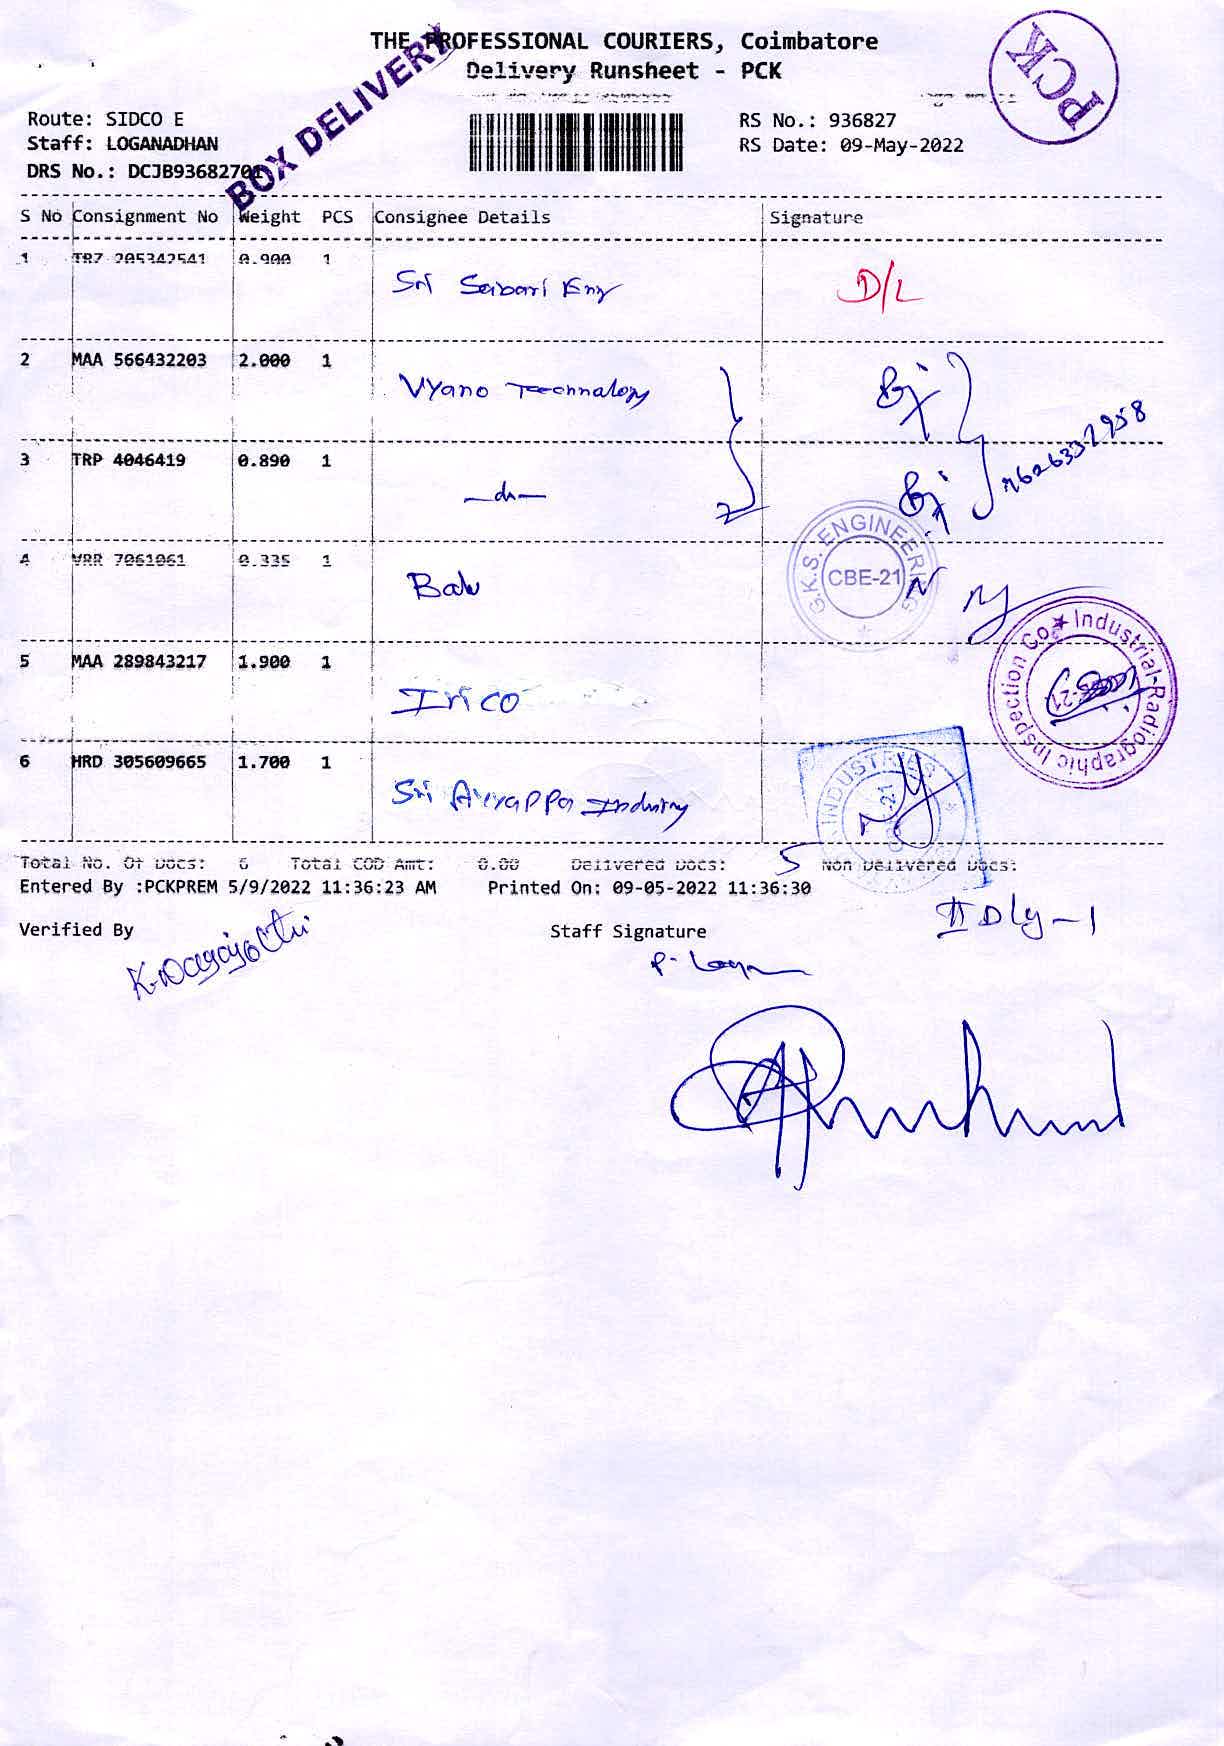 THE PROFESSIONAL COURIERS, Coimbatore
Delivery Runsheet - PCK
PCK
BOX DELIVERY
Route: SIDCO E
RS No.: 936827
Staff: LOGANADHAN
RS Date: 09-May-2022
DRS No.: DCJB93682701
S No Consignment No Weight PCS Consignee Details Signature
1 TRZ 205342541 0.900 1 Sri Sabari Eng D/L
2 MAA 566432203 2.000 1 Vyano Technology
3 TRP 4046419 0.890 1 —do— 7626337958
G.K.S. ENGINEERING
CBE-21
4 VRR 7061061 0.335 1 Balu
5 MAA 289843217 1.900 1 Irico
Industrial-Radiographic Inspection Co
6 HRD 305609665 1.700 1 Sri Ayyappa Industry
INDUSTRIES
Total No. Of Docs: 6 Total COD Amt: 0.00 Delivered Docs: 5 Non Delivered Docs:
Entered By :PCKPREM 5/9/2022 11:36:23 AM Printed On: 09-05-2022 11:36:30
II Dly - 1
Verified By Staff Signature
P. Loga